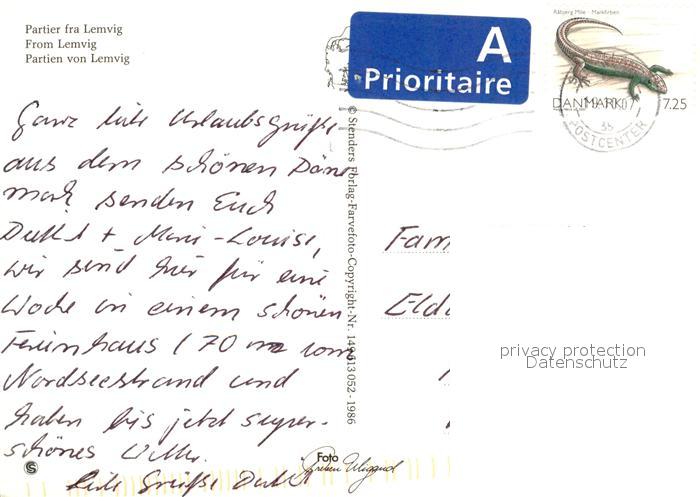 Partier fra Lemvig
From Lemvig
Partien von Lemvig
A
Prioritaire
Råbjerg Mile - Markfirben
DANMARK 7.25
POSTCENTER
Ganz liebe Urlaubsgrüße
aus dem schönen Däne
mark senden Euch
+ Marie-Louise,
wir sind hier für eine
Woche in einem schönen
Ferienhaus (70 m vom
Nordseestrand und
haben bis jetzt super-
schönes
Liebe Grüße
© Stenders Forlag-Farvefoto-Copyright-Nr. 149 613 052 - 1986
Fam
Eld
privacy protection
Datenschutz
S
Foto